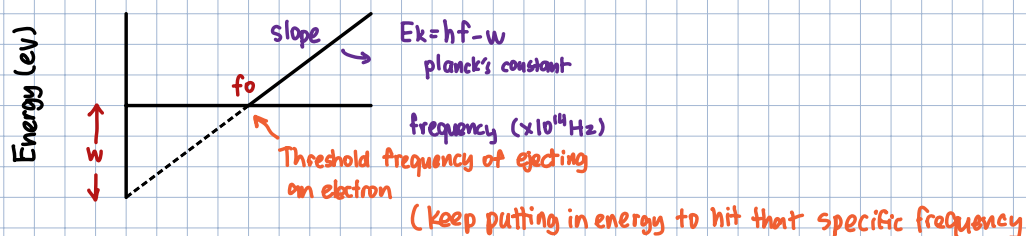 slope
Ek=hf-w
planck's constant
Energy (ev)
fo
frequency (x10¹⁴Hz)
w
Threshold frequency of ejecting
an electron
(keep putting in energy to hit that specific frequency